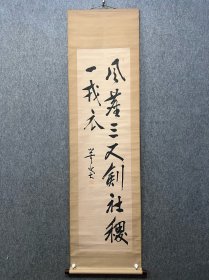 風塵三尺劍社稷
一戎衣